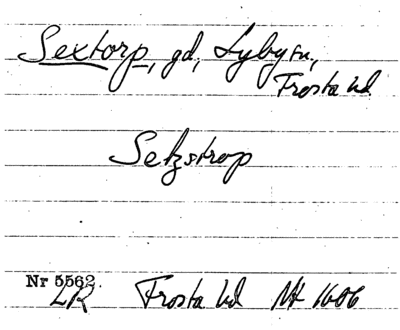 Sextorp, gd, Lyby sn,
Frosta hd
Setzstrop
Nr 5562.
LR Frosta hd Mt 1606